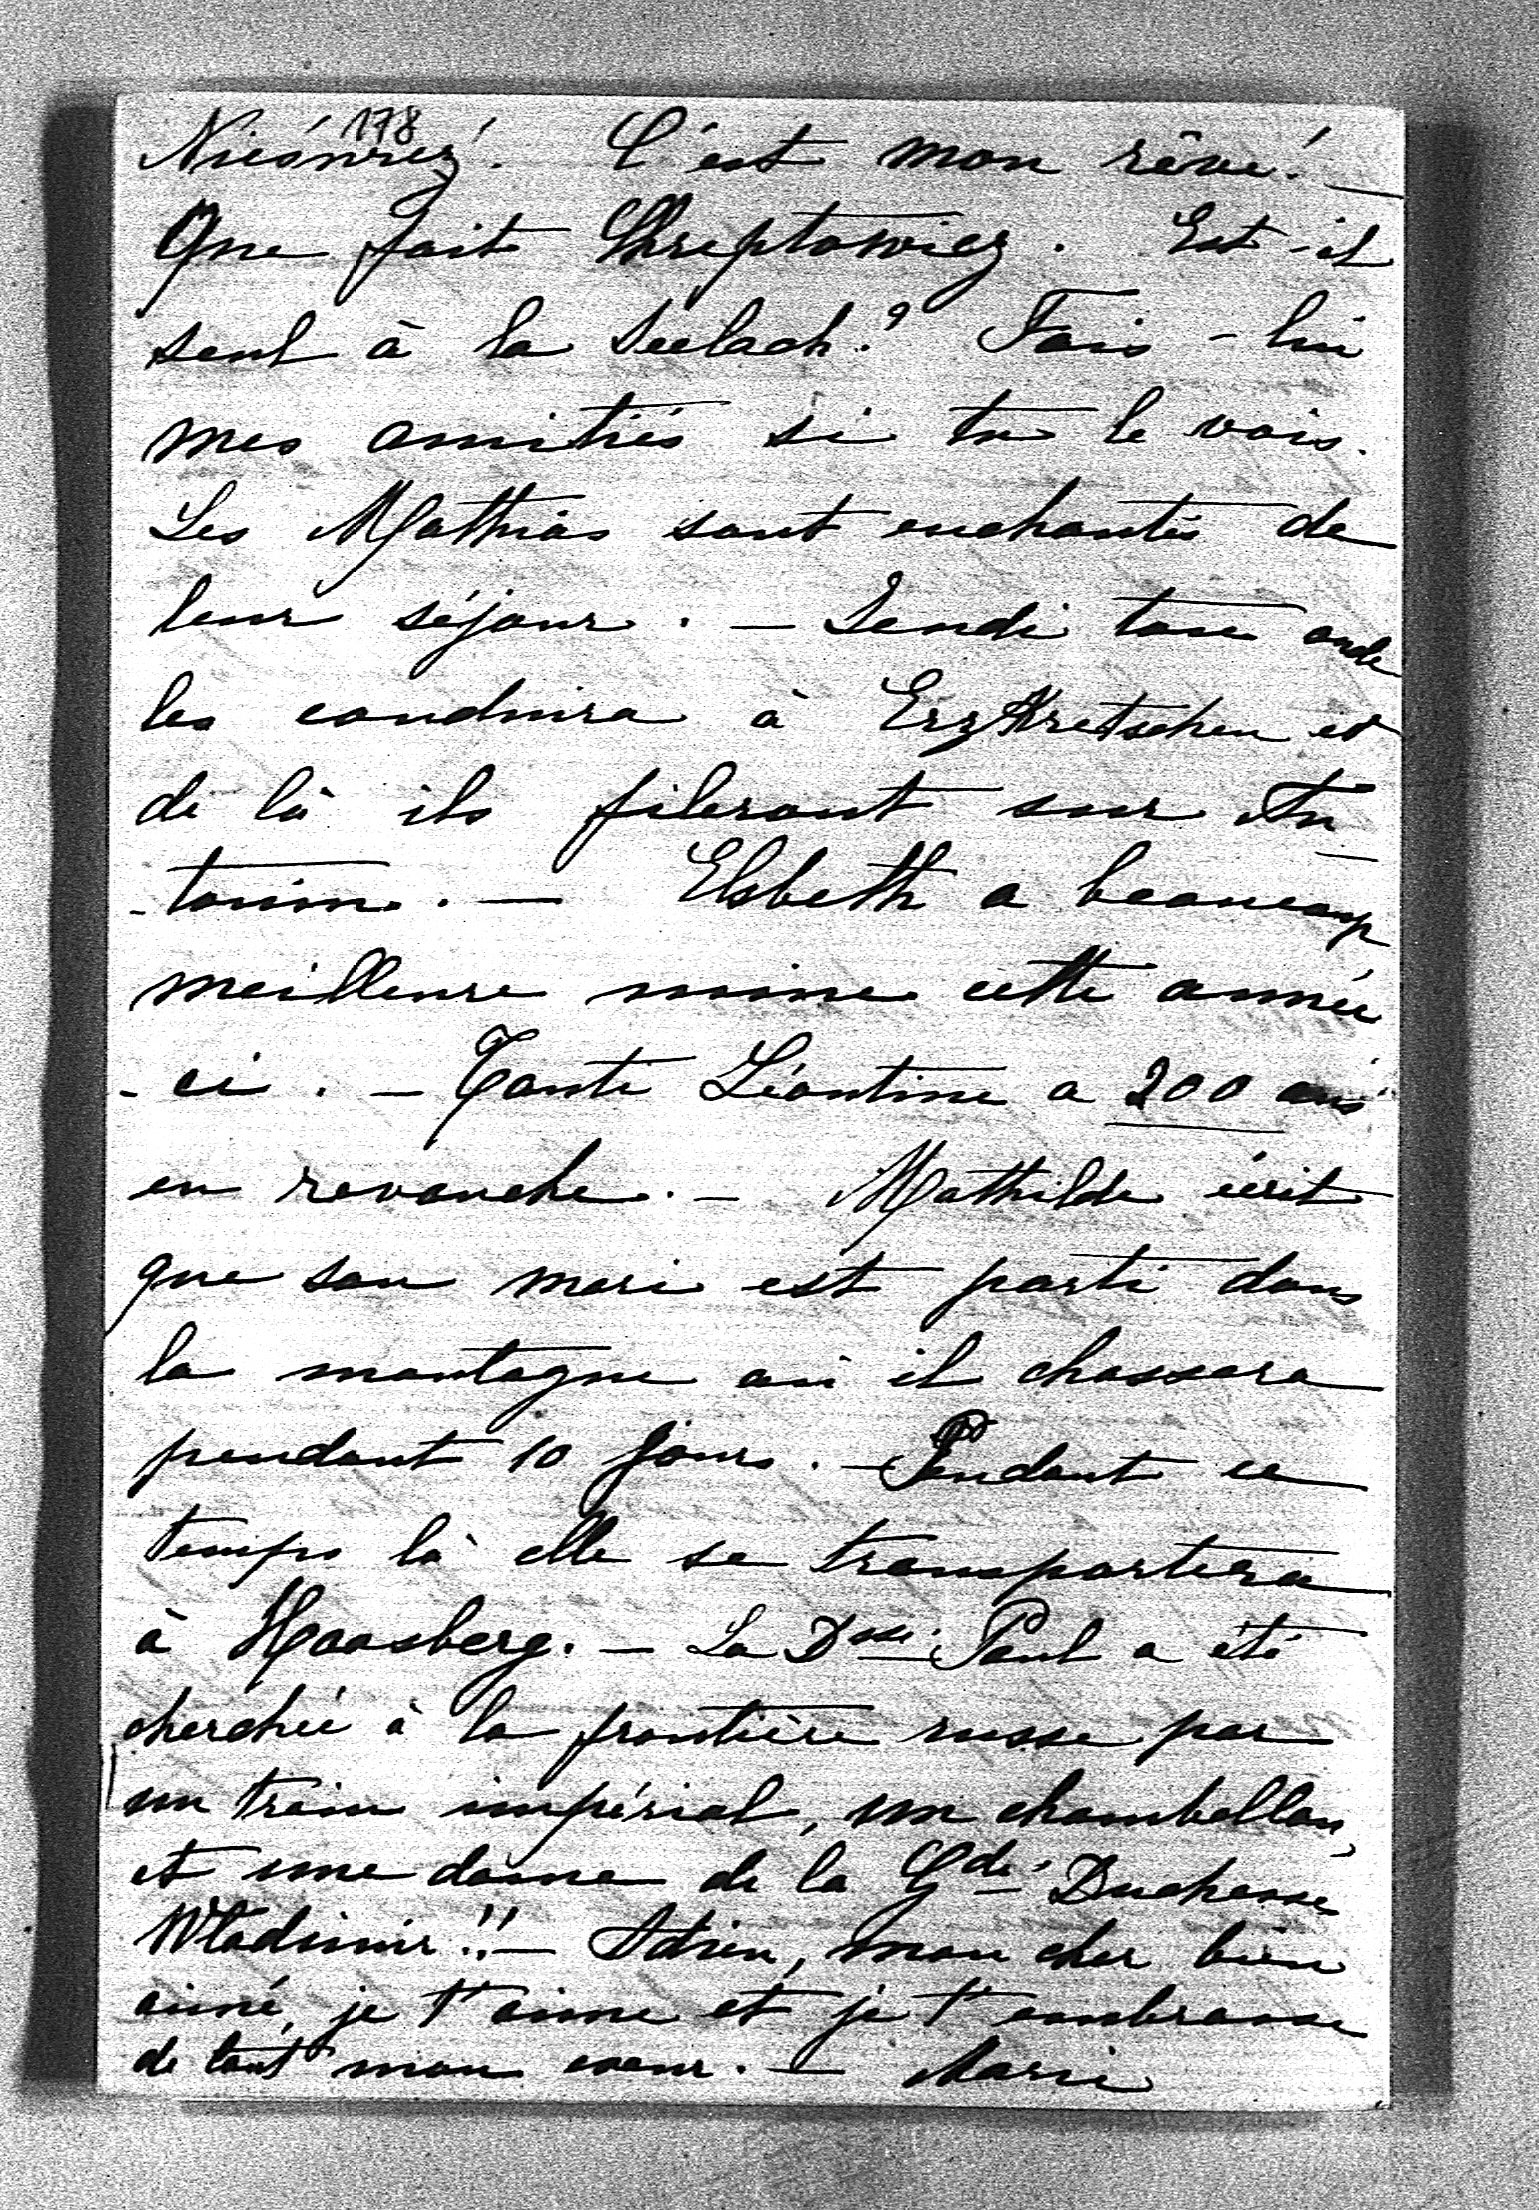 178
Nieśwież. C'est mon rêve! —
Que fait Chreptowicz. Est-il
seul à la Seelach? Fais-lui
mes amitiés si tu le vois.
Les Mathias sont enchantés de
leur séjour. — Lundi ton oncle
les conduira à Kretschen et
de là ils fileront sur An
-tonin. — Elsbeth a beaucoup
meilleure mine cette année
-ci. — Tante Léontine a 200 ans
en revanche. — Mathilde écrit
que son mari est parti dans
la montagne où il chassera
pendant 10 jours. — Pendant ce
temps là elle se transportera
à Haasberg. — La Dsse Paul a été
cherchée à la frontière russe par
un train impérial, un chambellan,
et une dame de la Gde Duchesse
Wladimir!! — Adrien, mon cher bien
aimé, je t'aime et je t'embrasse
de tout mon coeur. — Marie